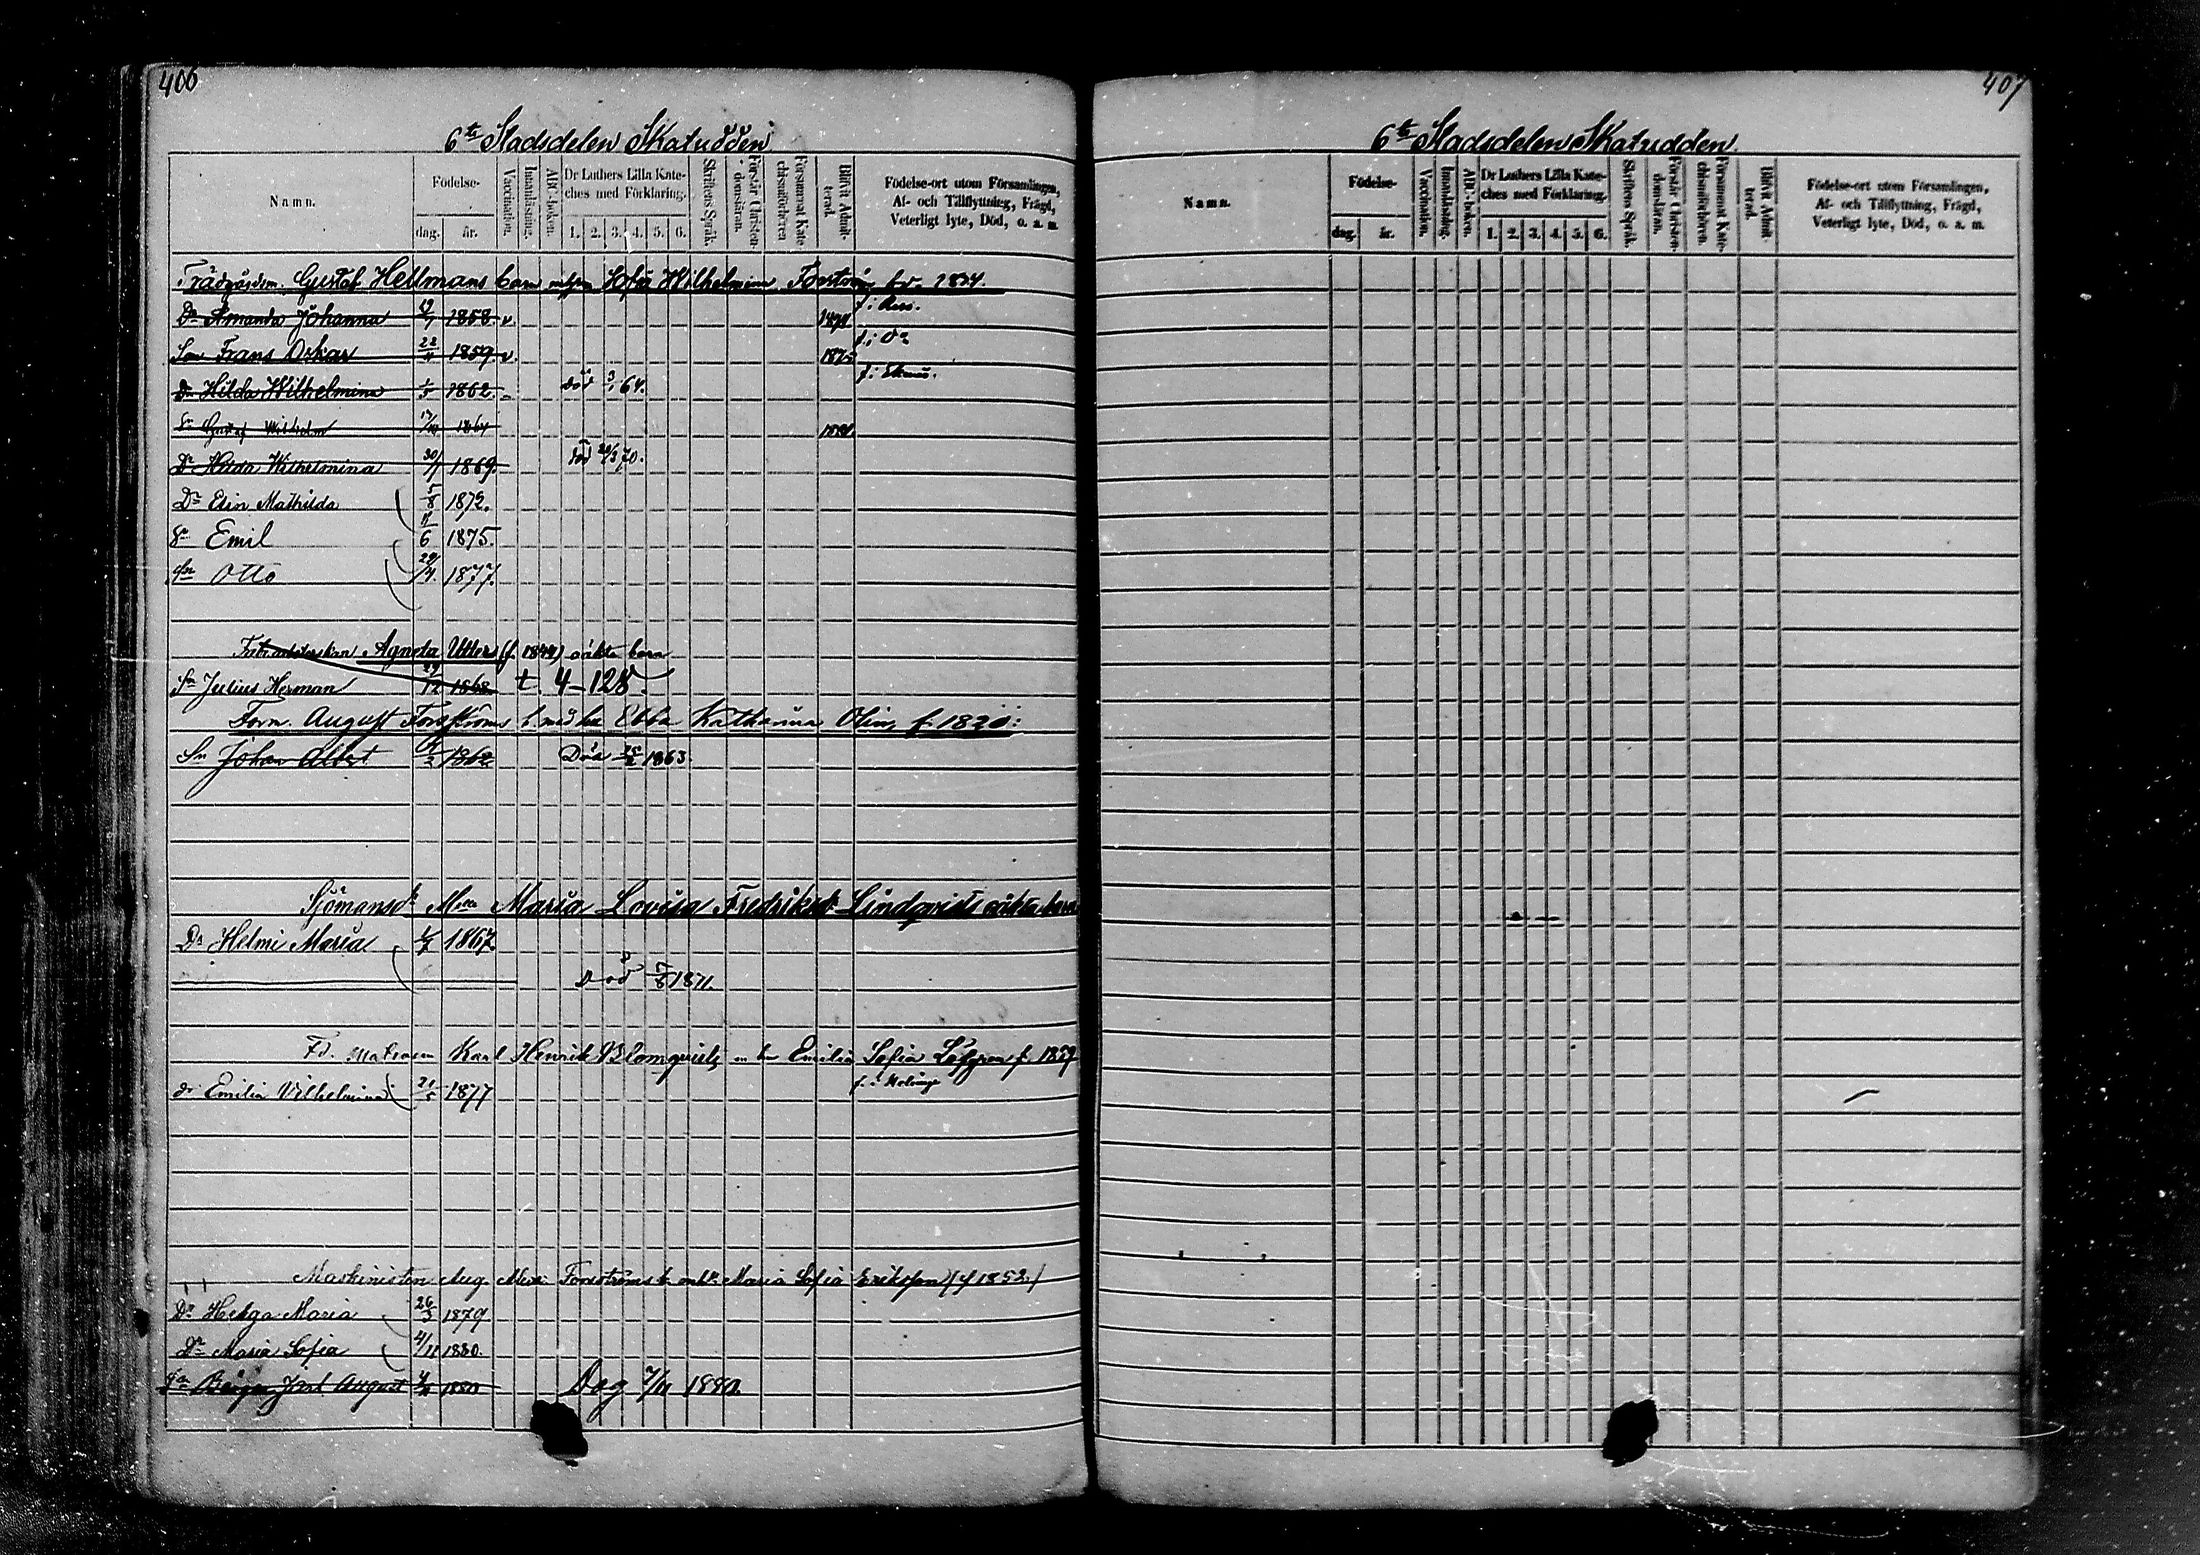 406
6te Stadsdelen Skatudden
Namn.
Födelse-
dag.
år.
Vaccination.
Innanläsning.
ABC-boken.
Dr Luthers Lilla Kate-
ches med Förklaring.
1. 2. 3. 4. 5. 6.
Skriftens Språk.
Förstår Christen-
domsläran.
Försummat Kate-
chismiförhören
Blifvit Admit-
terad.
Födelse-ort utom Församlingen,
Af- och Tillflyttning, Frägd,
Veterligt lyte, Död, o. a. m.
Trädgårdsm. Gustaf Hellmans barn Sofia Wilhelmina 1834.
Dr Amanda Johanna 1858. v.
Son Frans Oskar 1859. v. 1875
Dr Hilda Wilhelmina 1/5 1862. död 64.
Sn Gustaf Wilhelm 17/10 1864
Dr Hilda Wilhelmina 30/7 1869. död 70.
Dr Elin Mathilda 5/8 1872.
Sn Emil 6 1875.
Sn Otto 29/4. 1877.
Agneta Utter oäkta barn
Sn Julius Herman 1868 t. 4–128.
Form. August Forsströms b. med hu Ebba Katharina Olin f. 1820:
Sn Johan Albert 1862 Död 1863.
Sjömansd. Maria Lovisa Fredriksd. Lindqvists oäkta barn
Dr Helmi Maria 1867.
Död 1871.
Fd. Matrosen Karl Henrik Blomqvists m hu Emilia Sofia Löfgren f. 1857
dr Emilia Vilhelmina 21/5 1877
Maskinisten Aug. Forsströms Maria Sofia Eriksson (f 1852.)
Dr Helga Maria 26/3 1879
Dr Maria Sofia 4/11 1880.
Sn Birger Jarl August 1880 Dog 7/11 1880.
407
6te Stadsdelen Skatudden.
Namn.
Födelse-
dag.
år.
Vaccination.
Innanläsning.
ABC-boken.
Dr Luthers Lilla Kate-
ches med Förklaring.
1. 2. 3. 4. 5. 6.
Skriftens Språk.
Förstår Christen-
domsläran.
Försummat Kate-
chismiförhören.
Blifvit Admit-
terad.
Födelse-ort utom Församlingen,
Af- och Tillflyttning, Frägd,
Veterligt lyte, Död, o. a. m.